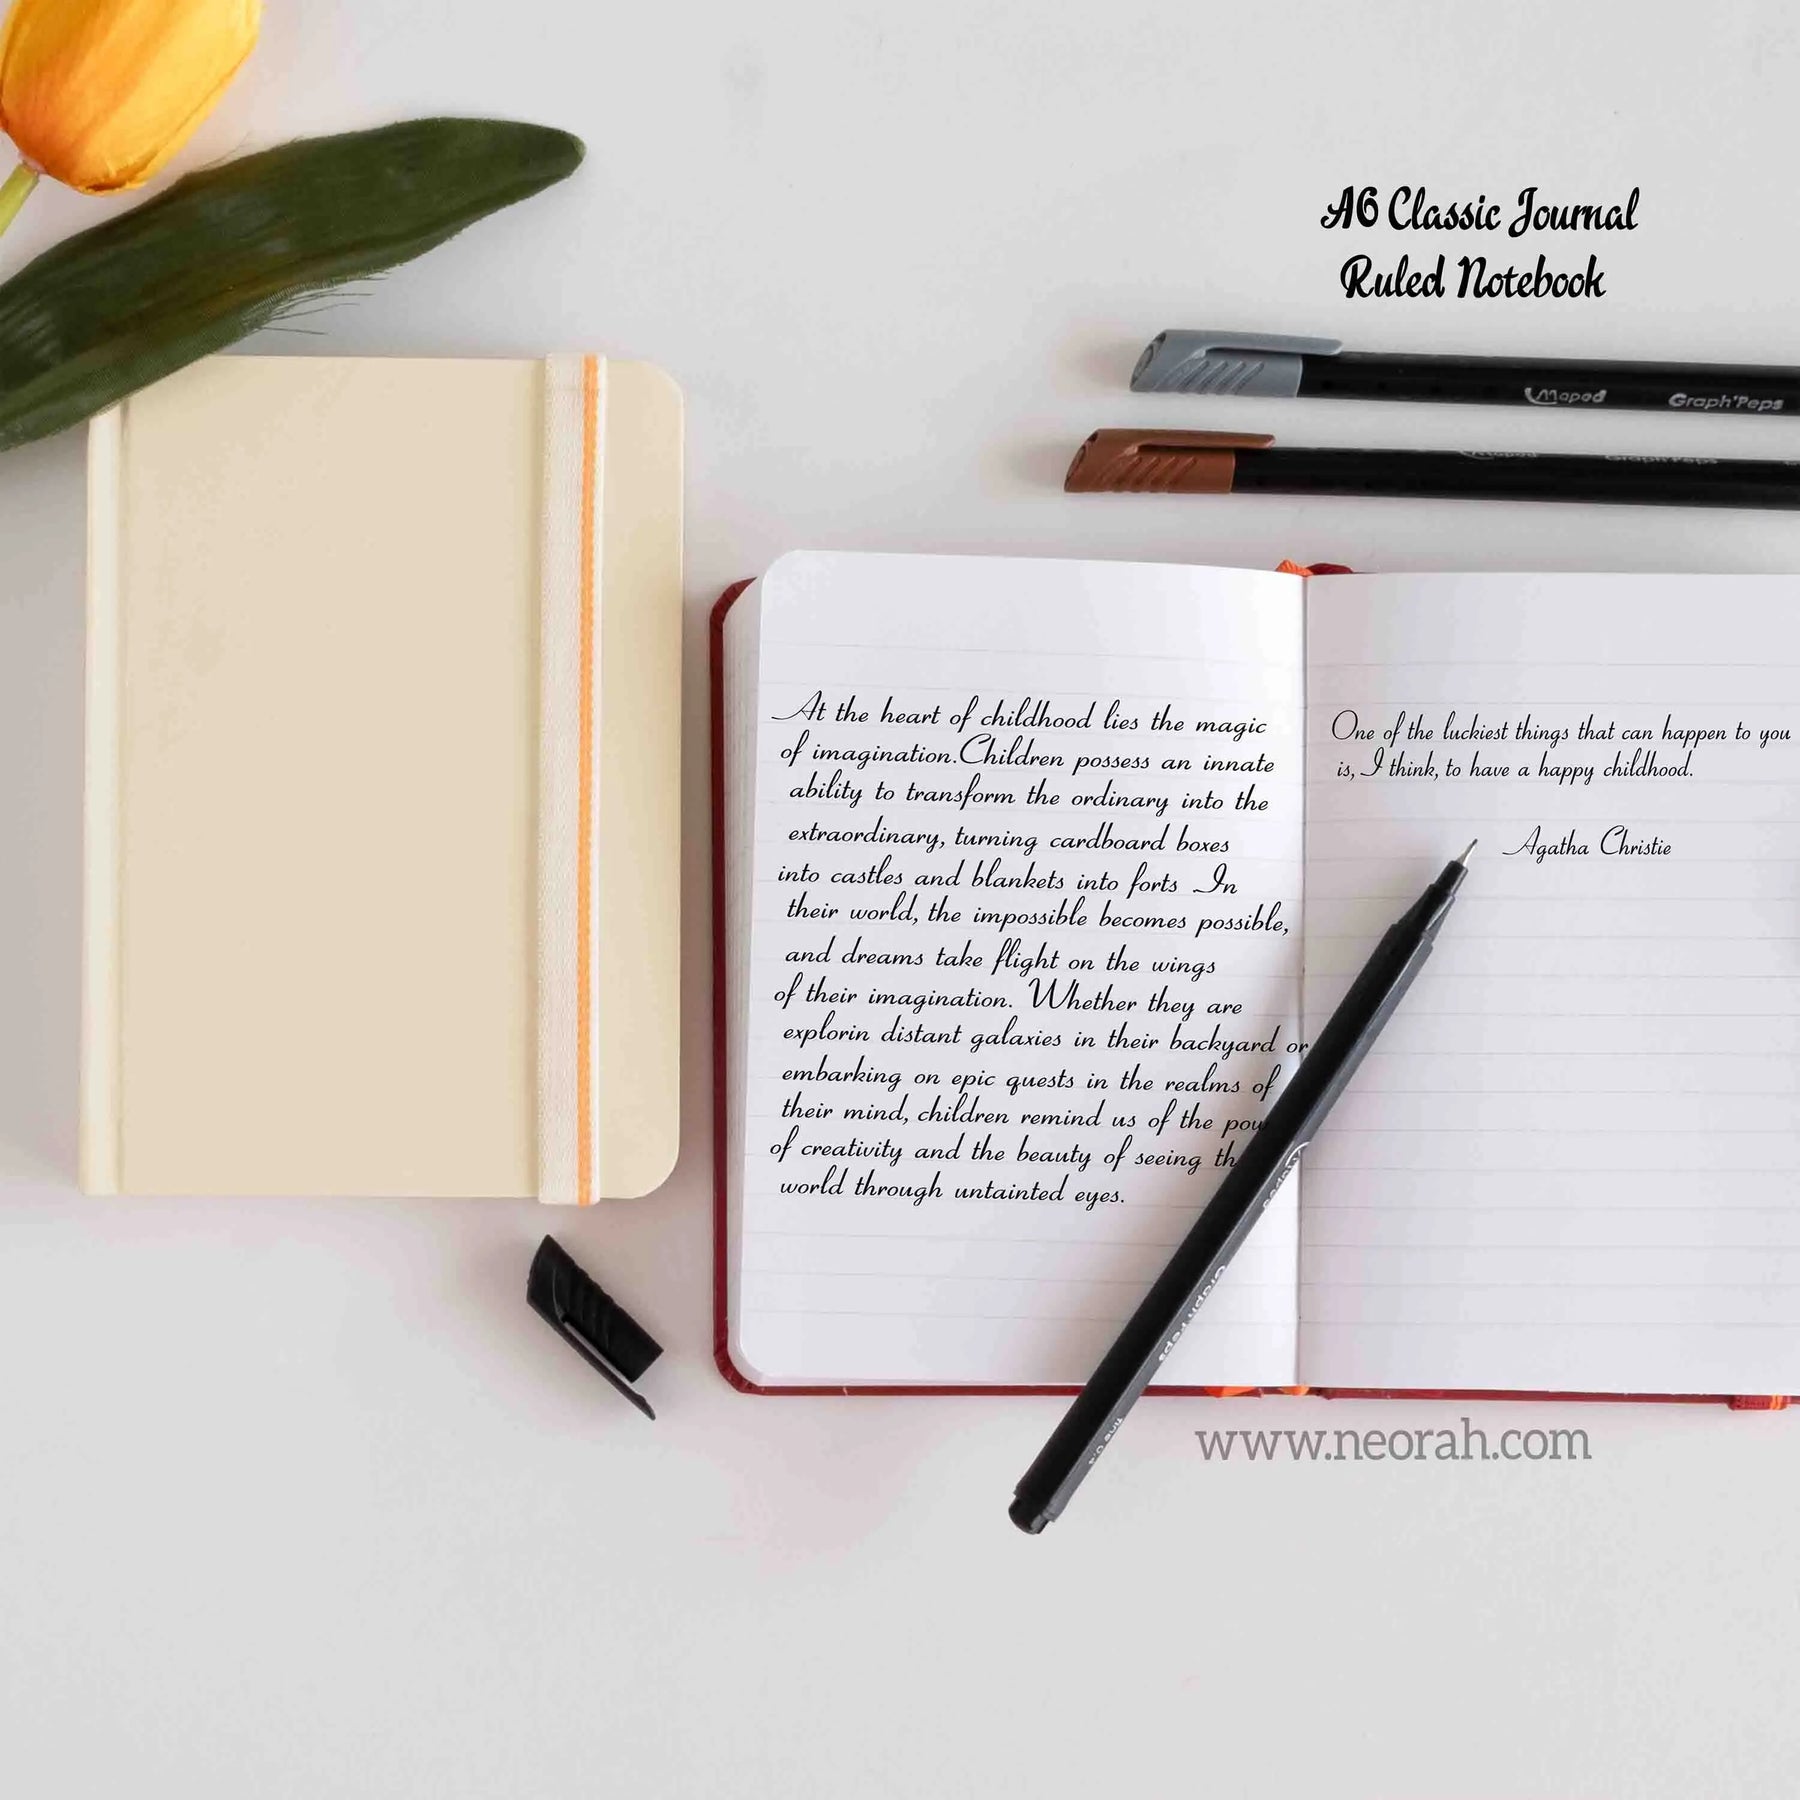 A6 Classic Journal
Ruled Notebook
Maped Graph'Peps
Maped Graph'Peps
At the heart of childhood lies the magic
of imagination.Children possess an innate
ability to transform the ordinary into the
extraordinary, turning cardboard boxes
into castles and blankets into forts In
their world, the impossible becomes possible,
and dreams take flight on the wings
of their imagination. Whether they are
explorin distant galaxies in their backyard or
embarking on epic quests in the realms of
their mind, children remind us of the pow
of creativity and the beauty of seeing th
world through untainted eyes.
One of the luckiest things that can happen to you
is, I think, to have a happy childhood.
Agatha Christie
Maped
Graph'Peps
fine 0.4
www.neorah.com